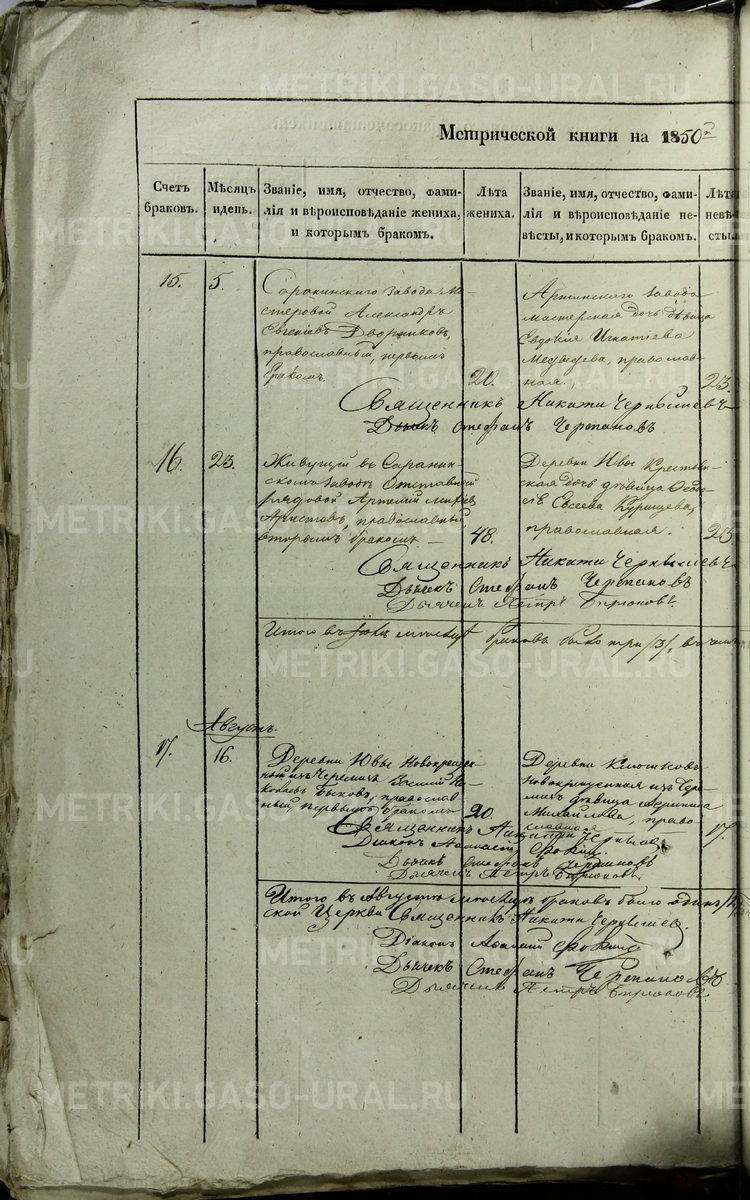 METRIKI.GASO-URAL.RU
Метрической книги на 1850й
Счетъ браковъ.
Мѣсяцъ и день.
Званіе, имя, отчество, фамилія и вѣроисповѣданіе жениха, и которымъ бракомъ.
Лѣта жениха.
Званіе, имя, отчество, фамилія и вѣроисповѣданіе невѣсты, и которымъ бракомъ.
Лѣта невѣсты.
15.
5.
Саранинскаго завода Ма-
стеровой Александръ
Евгеніевъ Дворников,
православный, первымъ
бракомъ.
20.
Артинскаго завода
мастерская дочь дѣвица
Евдокія Игнатіева
православ-
ная.
23
Священникъ Никита Чернышевъ
Дьячекъ Стефанъ Черепановъ
16.
23.
Живущій въ Саранин-
скомъ заводѣ Отставной
рядовой Артемій
Аристовъ, православный
вторымъ бракомъ
48.
Деревни Ювы Крестьян-
ская дочь дѣвица
Евсеева
православная.
23
Священникъ Никита Чернышевъ
Дьячекъ Стефанъ Черепановъ
Петръ Бирюковъ.
Итого въ мѣсяцѣ браковъ было три /3/, въ чемъ
Августъ.
17.
16.
Деревни Ювы Новокрещен-
ный изъ Черемисъ Василій Ни-
колаевъ Быковъ, православ-
ный, первымъ бракомъ
20.
Деревни
Новокрещенная изъ Чере-
мисъ дѣвица Марина
Михайлова, право-
славная
17.
Священникъ Никита Чернышевъ
Діаконъ Афанасій
Дьячекъ Стефанъ Черепановъ
Петръ Бирюковъ.
Итого въ Августѣ мѣсяцѣ браковъ было одинъ /1/
ской Церкви Священникъ Никита Чернышевъ
Діаконъ Афанасій
Дьячекъ Стефанъ Черепановъ
Петръ Бирюковъ.